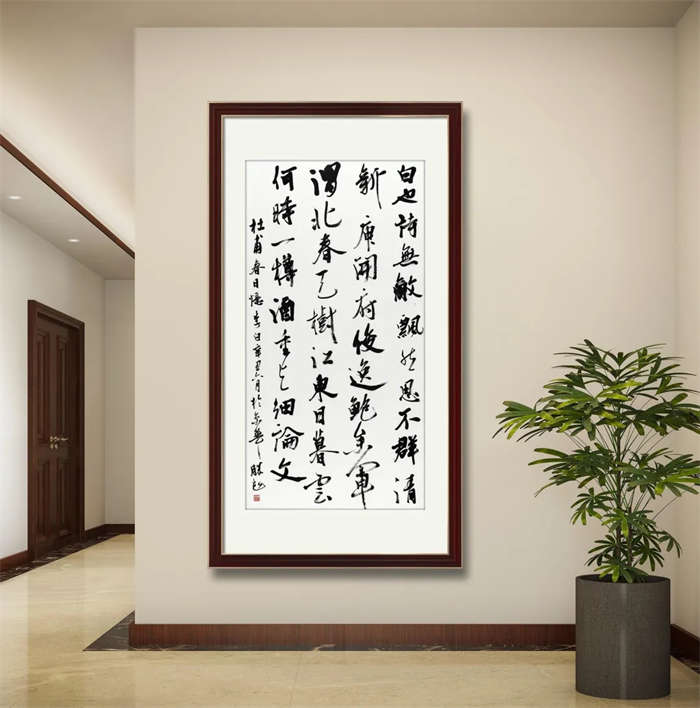 白也詩無敵飄然思不群清
新庾開府俊逸鮑參軍
渭北春天樹江東日暮雲
何時一樽酒重與細論文
杜甫春日憶李白辛丑月於京華